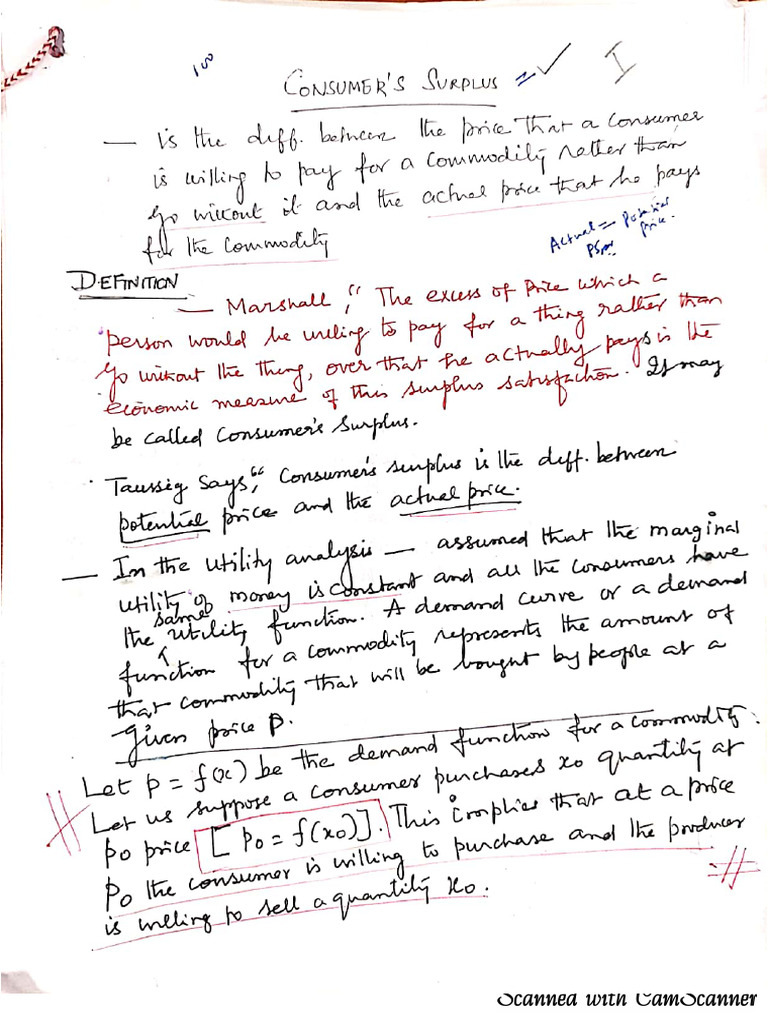 100
CONSUMER'S SURPLUS = ✓ I
— is the diff. between the price that a consumer
is willing to pay for a commodity rather than
go without it and the actual price that he pays
for the commodity
Actual — Potential
price.
DEFINITION
— Marshall, "The excess of Price which a
person would be willing to pay for a thing rather than
go without the thing, over that he actually pays is the
economic measure of this surplus satisfaction. It may
be called Consumer's Surplus.
Taussig says, "Consumer's surplus is the diff. between
potential price and the actual price.
— In the utility analysis — assumed that the marginal
utility of money is constant and all the consumers have
same
the utility function. A demand curve or a demand
function for a commodity represents the amount of
that commodity that will be bought by people at a
given price P.
Let p = f(x) be the demand function for a commodity.
Let us suppose a consumer purchases x0 quantity at
p0 price [p0 = f(x0)]. This implies that at a price
p0 the consumer is willing to purchase and the producer
is willing to sell a quantity x0.
Scanned with CamScanner